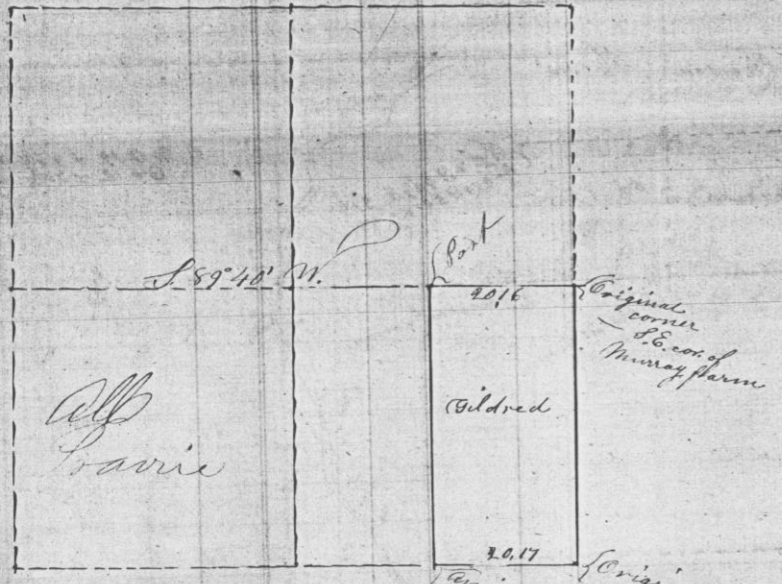 S. 89° 40' W.
Post
2016
Original
corner
S.E. cor. of
Murray farm
All
Prairie
Gildred
20.17
Origi